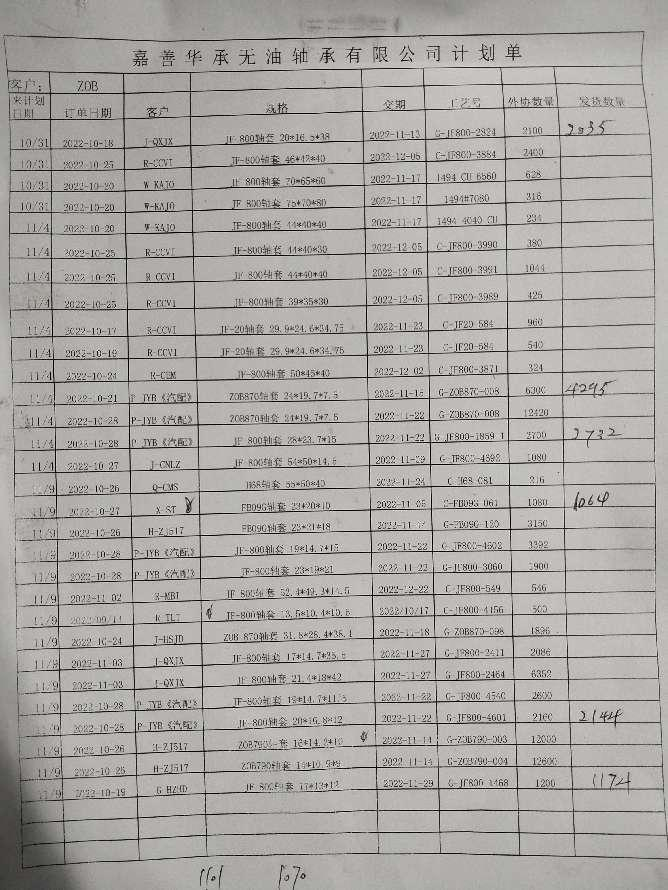 嘉善华承无油轴承有限公司计划单
客户: ZOB
来计划日期 订单日期 客户 规格 交期 工艺号 外协数量 发货数量
10/31 2022-10-18 J-QXJX JF-800轴套 20*16.5*38 2022-11-13 G-JF800-2824 2100 2035
10/31 2022-10-25 R-CCVI JF-800轴套 46*42*40 2022-12-05 C-JF800-3884 2400
10/31 2022-10-20 W-KAJO JF-800轴套 70*65*60 2022-11-17 1494 CU 6560 628
10/31 2022-10-20 W-KAJO JF-800轴套 75*70*80 2022-11-17 1494#7080 316
11/4 2022-10-20 W-KAJO JF-800轴套 44*40*40 2022-11-17 1494 4040 CU 234
11/4 2022-10-25 R-CCVI JF-800轴套 44*40*30 2022-12-05 C-JF800-3990 380
11/4 2022-10-25 R-CCVI JF-800轴套 44*40*40 2022-12-05 C-JF800-3991 1044
11/4 2022-10-25 R-CCVI JF-800轴套 39*35*30 2022-12-05 C-JF800-3989 425
11/4 2022-10-17 R-CCVI JF-20轴套 29.9*24.6*34.75 2022-11-23 C-JF20-584 960
11/4 2022-10-19 R-CCVI JF-20轴套 29.9*24.6*34.75 2022-11-23 C-JF20-584 540
11/4 2022-10-24 R-CEM JF-800轴套 50*45*40 2022-12-02 C-JF800-3871 324
11/4 2022-10-21 P-JYB《汽配》 ZOB870轴套 24*19.7*7.5 2022-11-15 G-ZOB870-008 6300 4295
11/4 2022-10-28 P-JYB《汽配》 ZOB870轴套 24*19.7*7.5 2022-11-22 G-ZOB870-008 12420
11/4 2022-10-28 P-JYB《汽配》 JF-800轴套 28*23.7*15 2022-11-22 G-JF800-1859-1 2700 2732
11/4 2022-10-27 J-CNLZ JF-800轴套 54*50*14.5 G-JF800-4592 1080
11/9 2022-10-26 Q-CMS H68轴套 55*50*40 2022-11-24 C-H68-081 216
11/9 2022-10-27 X-ST FB09G轴套 23*20*10 2022-11-05 C-FB09G-061 1080 1064
11/9 2022-10-26 H-ZJ517 FB09G轴套 23*21*18 3150
11/9 2022-10-28 P-JYB《汽配》 JF-800轴套 19*14.7*15 2022-11-22 G-JF800-4602 3392
11/9 2022-10-28 P-JYB《汽配》 JF-800轴套 23*19*21 2022-11-22 G-JF800-3060 1900
11/9 2022-11-02 S-MBI JF-800轴套 52.4*49.3*14.5 2022-12-22 C-JF800-549 546
11/9 JF-800轴套 13.5*10.4*10.5 2022/10/17 C-JF800-4156 500
11/9 2022-10-24 J-HSJD ZOB-870轴套 31.8*28.4*38.1 2022-11-18 G-ZOB870-098 1896
11/9 2022-11-03 J-QXJX JF-800轴套 17*14.7*35.5 2022-11-27 G-JF800-2411 2086
11/9 2022-11-03 J-QXJX JF-800轴套 21.4*18*42 2022-11-27 G-JF800-2464 6352
11/9 2022-10-28 P-JYB《汽配》 JF-800轴套 19*14.7*11.5 2022-11-22 G-JF800-4540 2600
11/9 2022-10-28 P-JYB《汽配》 JF-800轴套 20*16.8*12 2022-11-22 G-JF800-4601 2160 2144
11/9 2022-10-26 H-ZJ517 2022-11-14 G-ZOB790-003 12000
11/9 2022-10-26 H-ZJ517 ZOB790轴套 14*10.9*9 2022-11-14 G-ZOB790-004 12600
11/9 2022-10-19 G-HZHD JF-800轴套 2022-11-29 G-JF800-1468 1200 1174
1101 1070